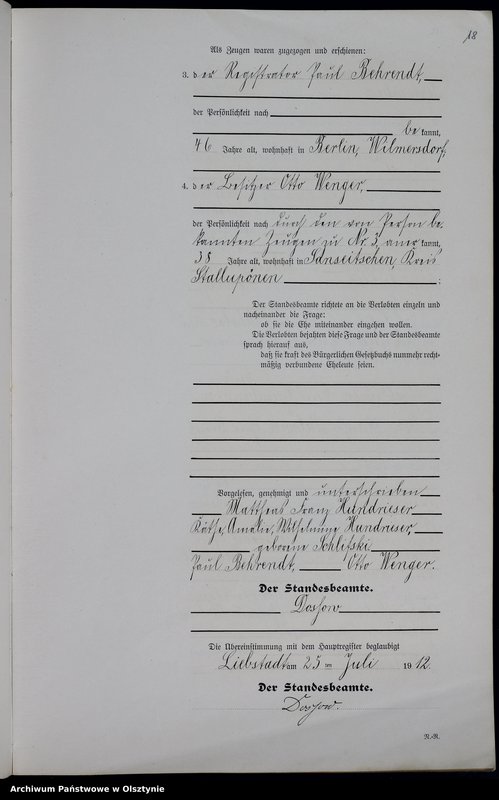 18
Als Zeugen waren zugezogen und erschienen:
3. der Registrator Paul Behrendt,
der Persönlichkeit nach
bekannt,
46 Jahre alt, wohnhaft in Berlin, Wilmersdorf;
4. der Besitzer Otto Wenger,
der Persönlichkeit nach durch den von Person be-
kannten Zeugen zu Nr. 3, anerkannt,
38 Jahre alt, wohnhaft in Kreis
Stallupönen;
Der Standesbeamte richtete an die Verlobten einzeln und
nacheinander die Frage:
ob sie die Ehe miteinander eingehen wollen.
Die Verlobten bejahten diese Frage und der Standesbeamte
sprach hierauf aus,
daß sie kraft des Bürgerlichen Gesetzbuchs nunmehr recht-
mäßig verbundene Eheleute seien.
Vorgelesen, genehmigt und unterschrieben
Mattheus Franz Hundrieser
Käthe, Amalie, Wilhelmine Hundrieser,
geborene Schlifski
Paul Behrendt, Otto Wenger.
Der Standesbeamte.
Dossow
Die Übereinstimmung mit dem Hauptregister beglaubigt
Liebstadt am 25 ten Juli 1912.
Der Standesbeamte.
Dossow.
Archiwum Państwowe w Olsztynie